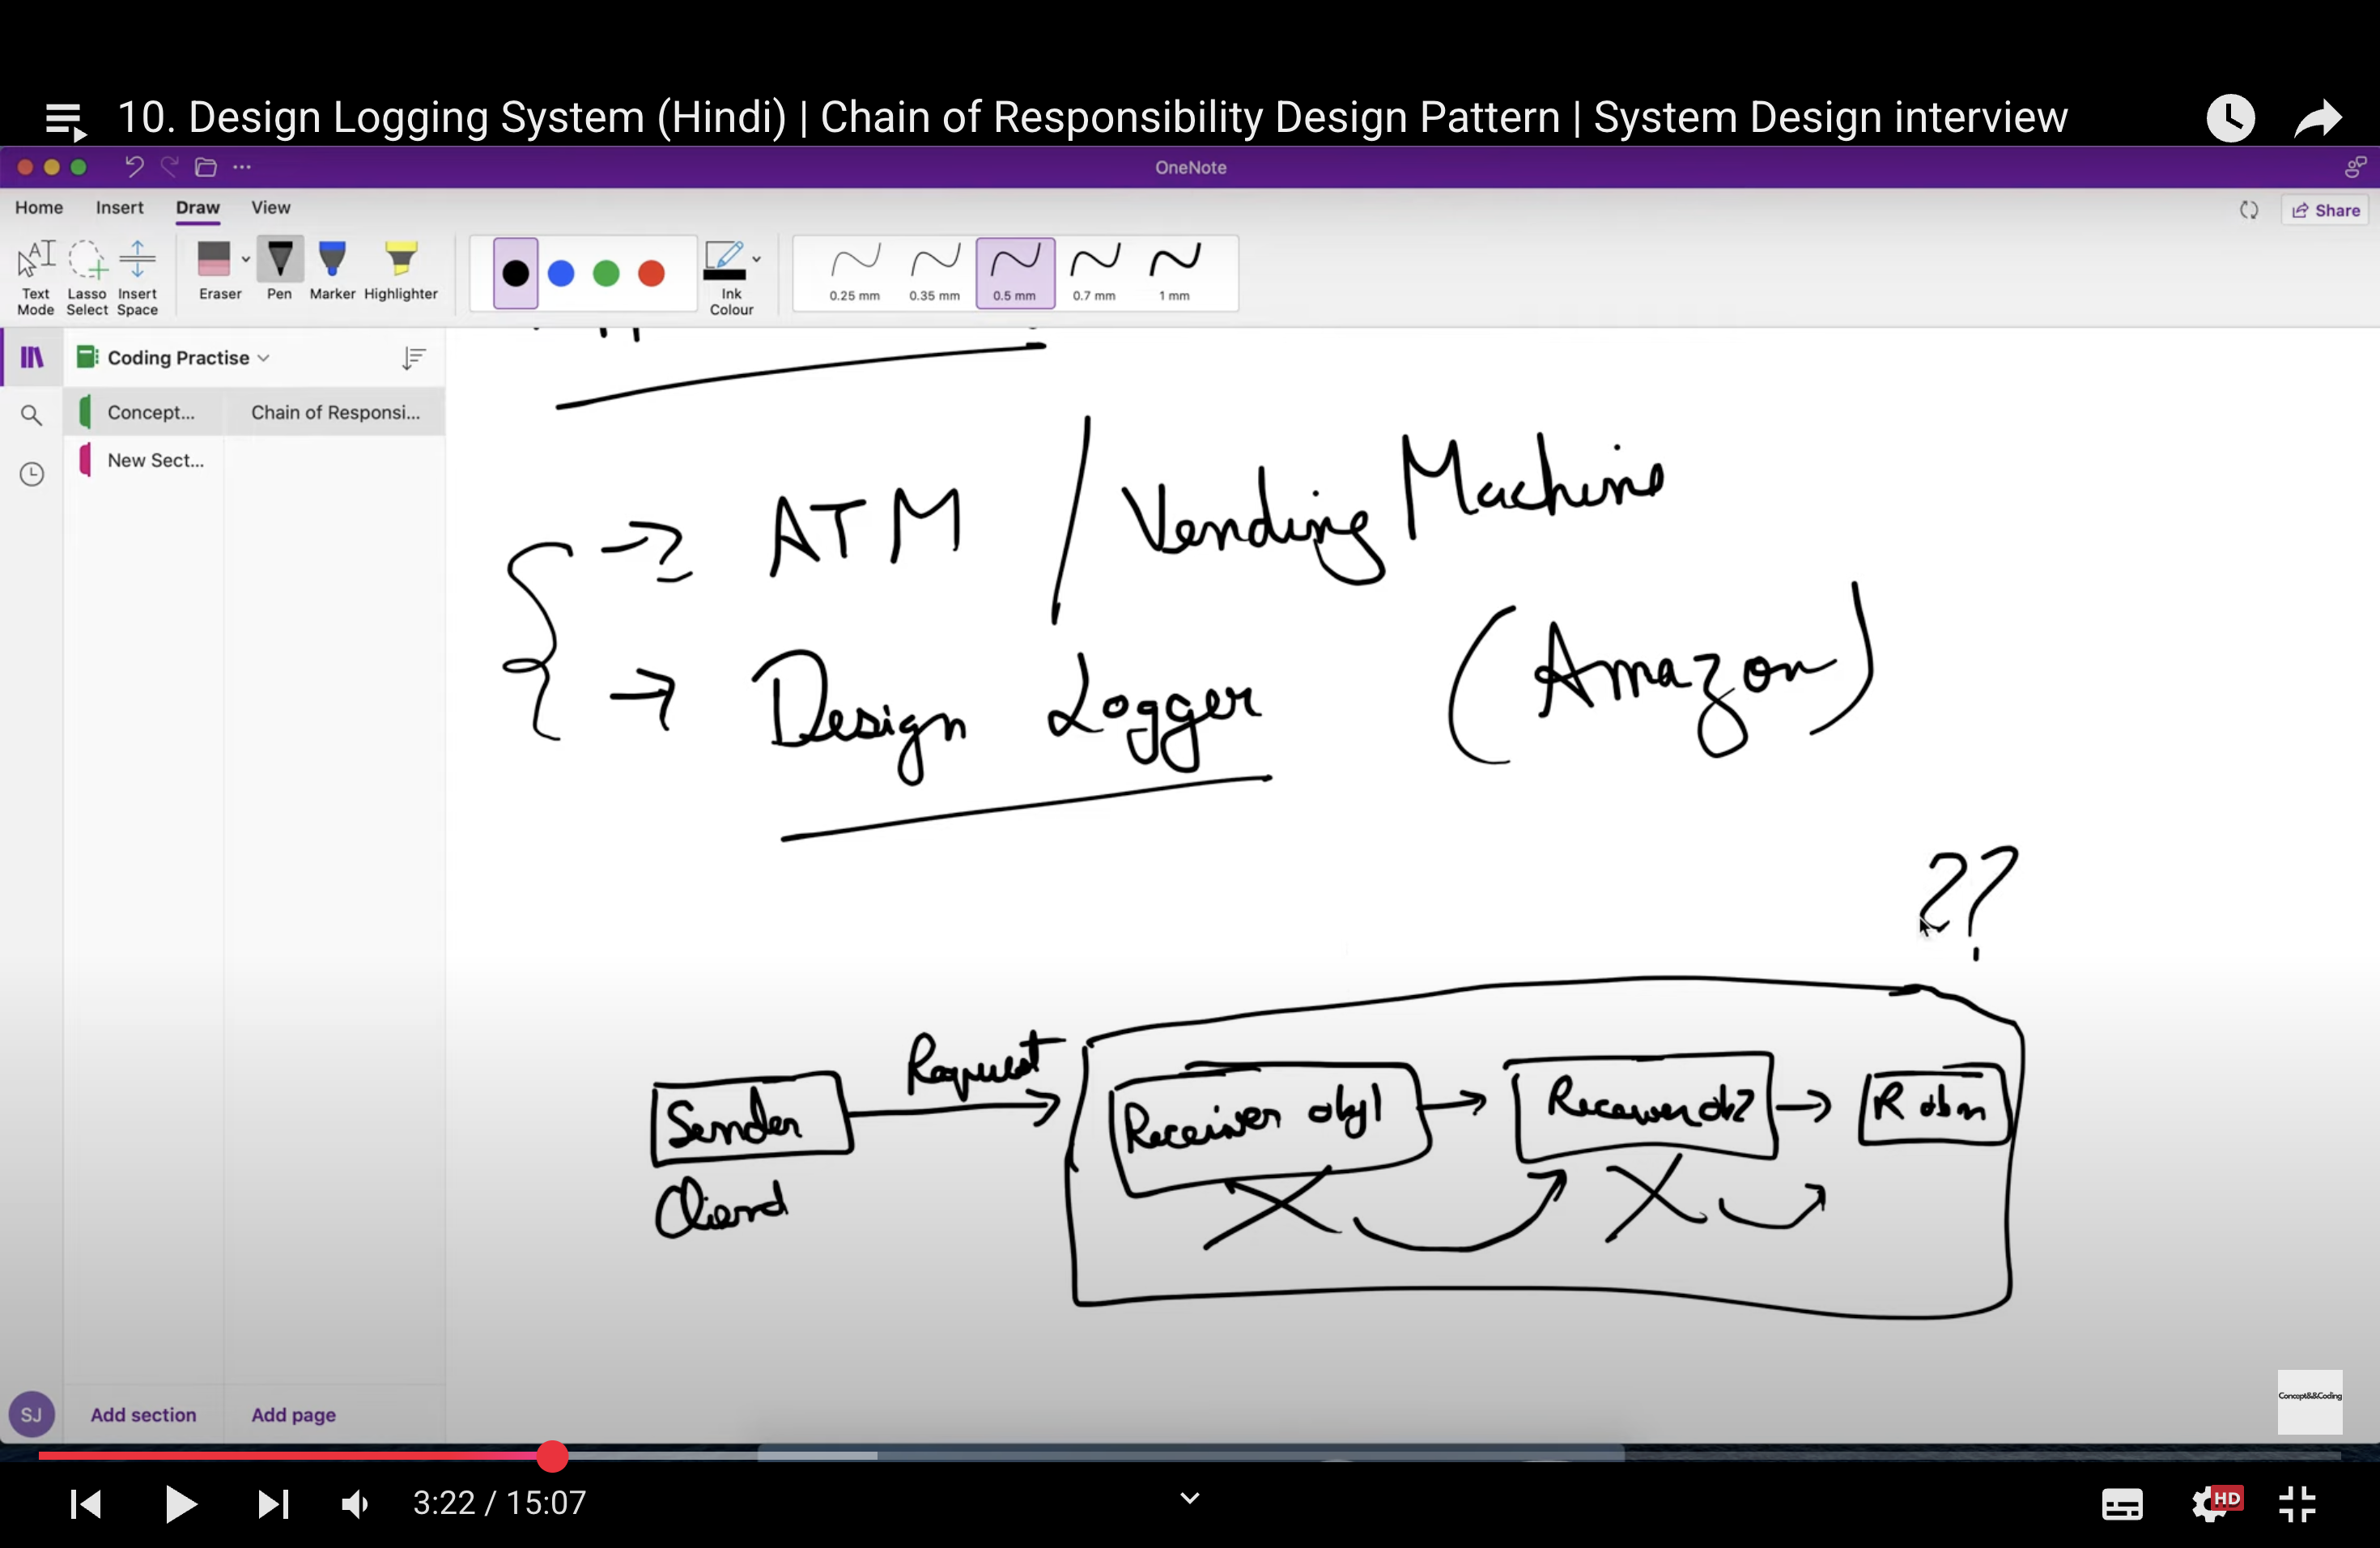 10. Design Logging System (Hindi) | Chain of Responsibility Design Pattern | System Design interview
OneNote
Home Insert Draw View
Share
Text Mode
Lasso Select
Insert Space
Eraser
Pen
Marker
Highlighter
Ink Colour
0.25 mm
0.35 mm
0.5 mm
0.7 mm
1 mm
Coding Practise
Concept... Chain of Responsi...
New Sect...
→ ATM / Vending Machine
→ Design Logger (Amazon)
??
Request
Sender → Receiver obj1 → Receiver ob2 → R obn
Client
SJ Add section Add page
Concept&&Coding
3:22 / 15:07
HD